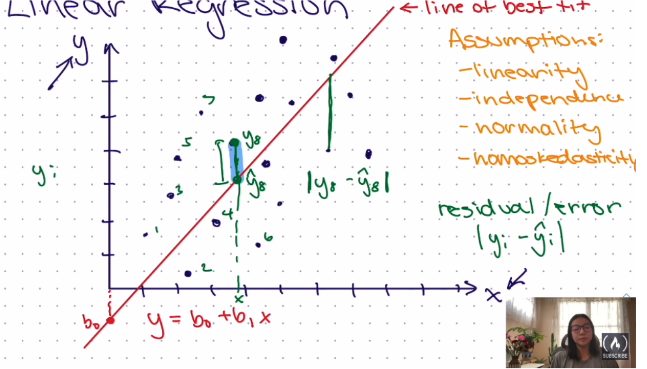 Linear Regression
← line of best fit
y
Assumptions:
-linearity
-independence
-normality
-homoskedasticity
7
5
y₈
yᵢ
ŷ₈
|y₈ - ŷ₈|
3
4
residual/error
|yᵢ - ŷᵢ|
1
6
2
x
x
b₀
y = b₀ + b₁x
SUBSCRIBE